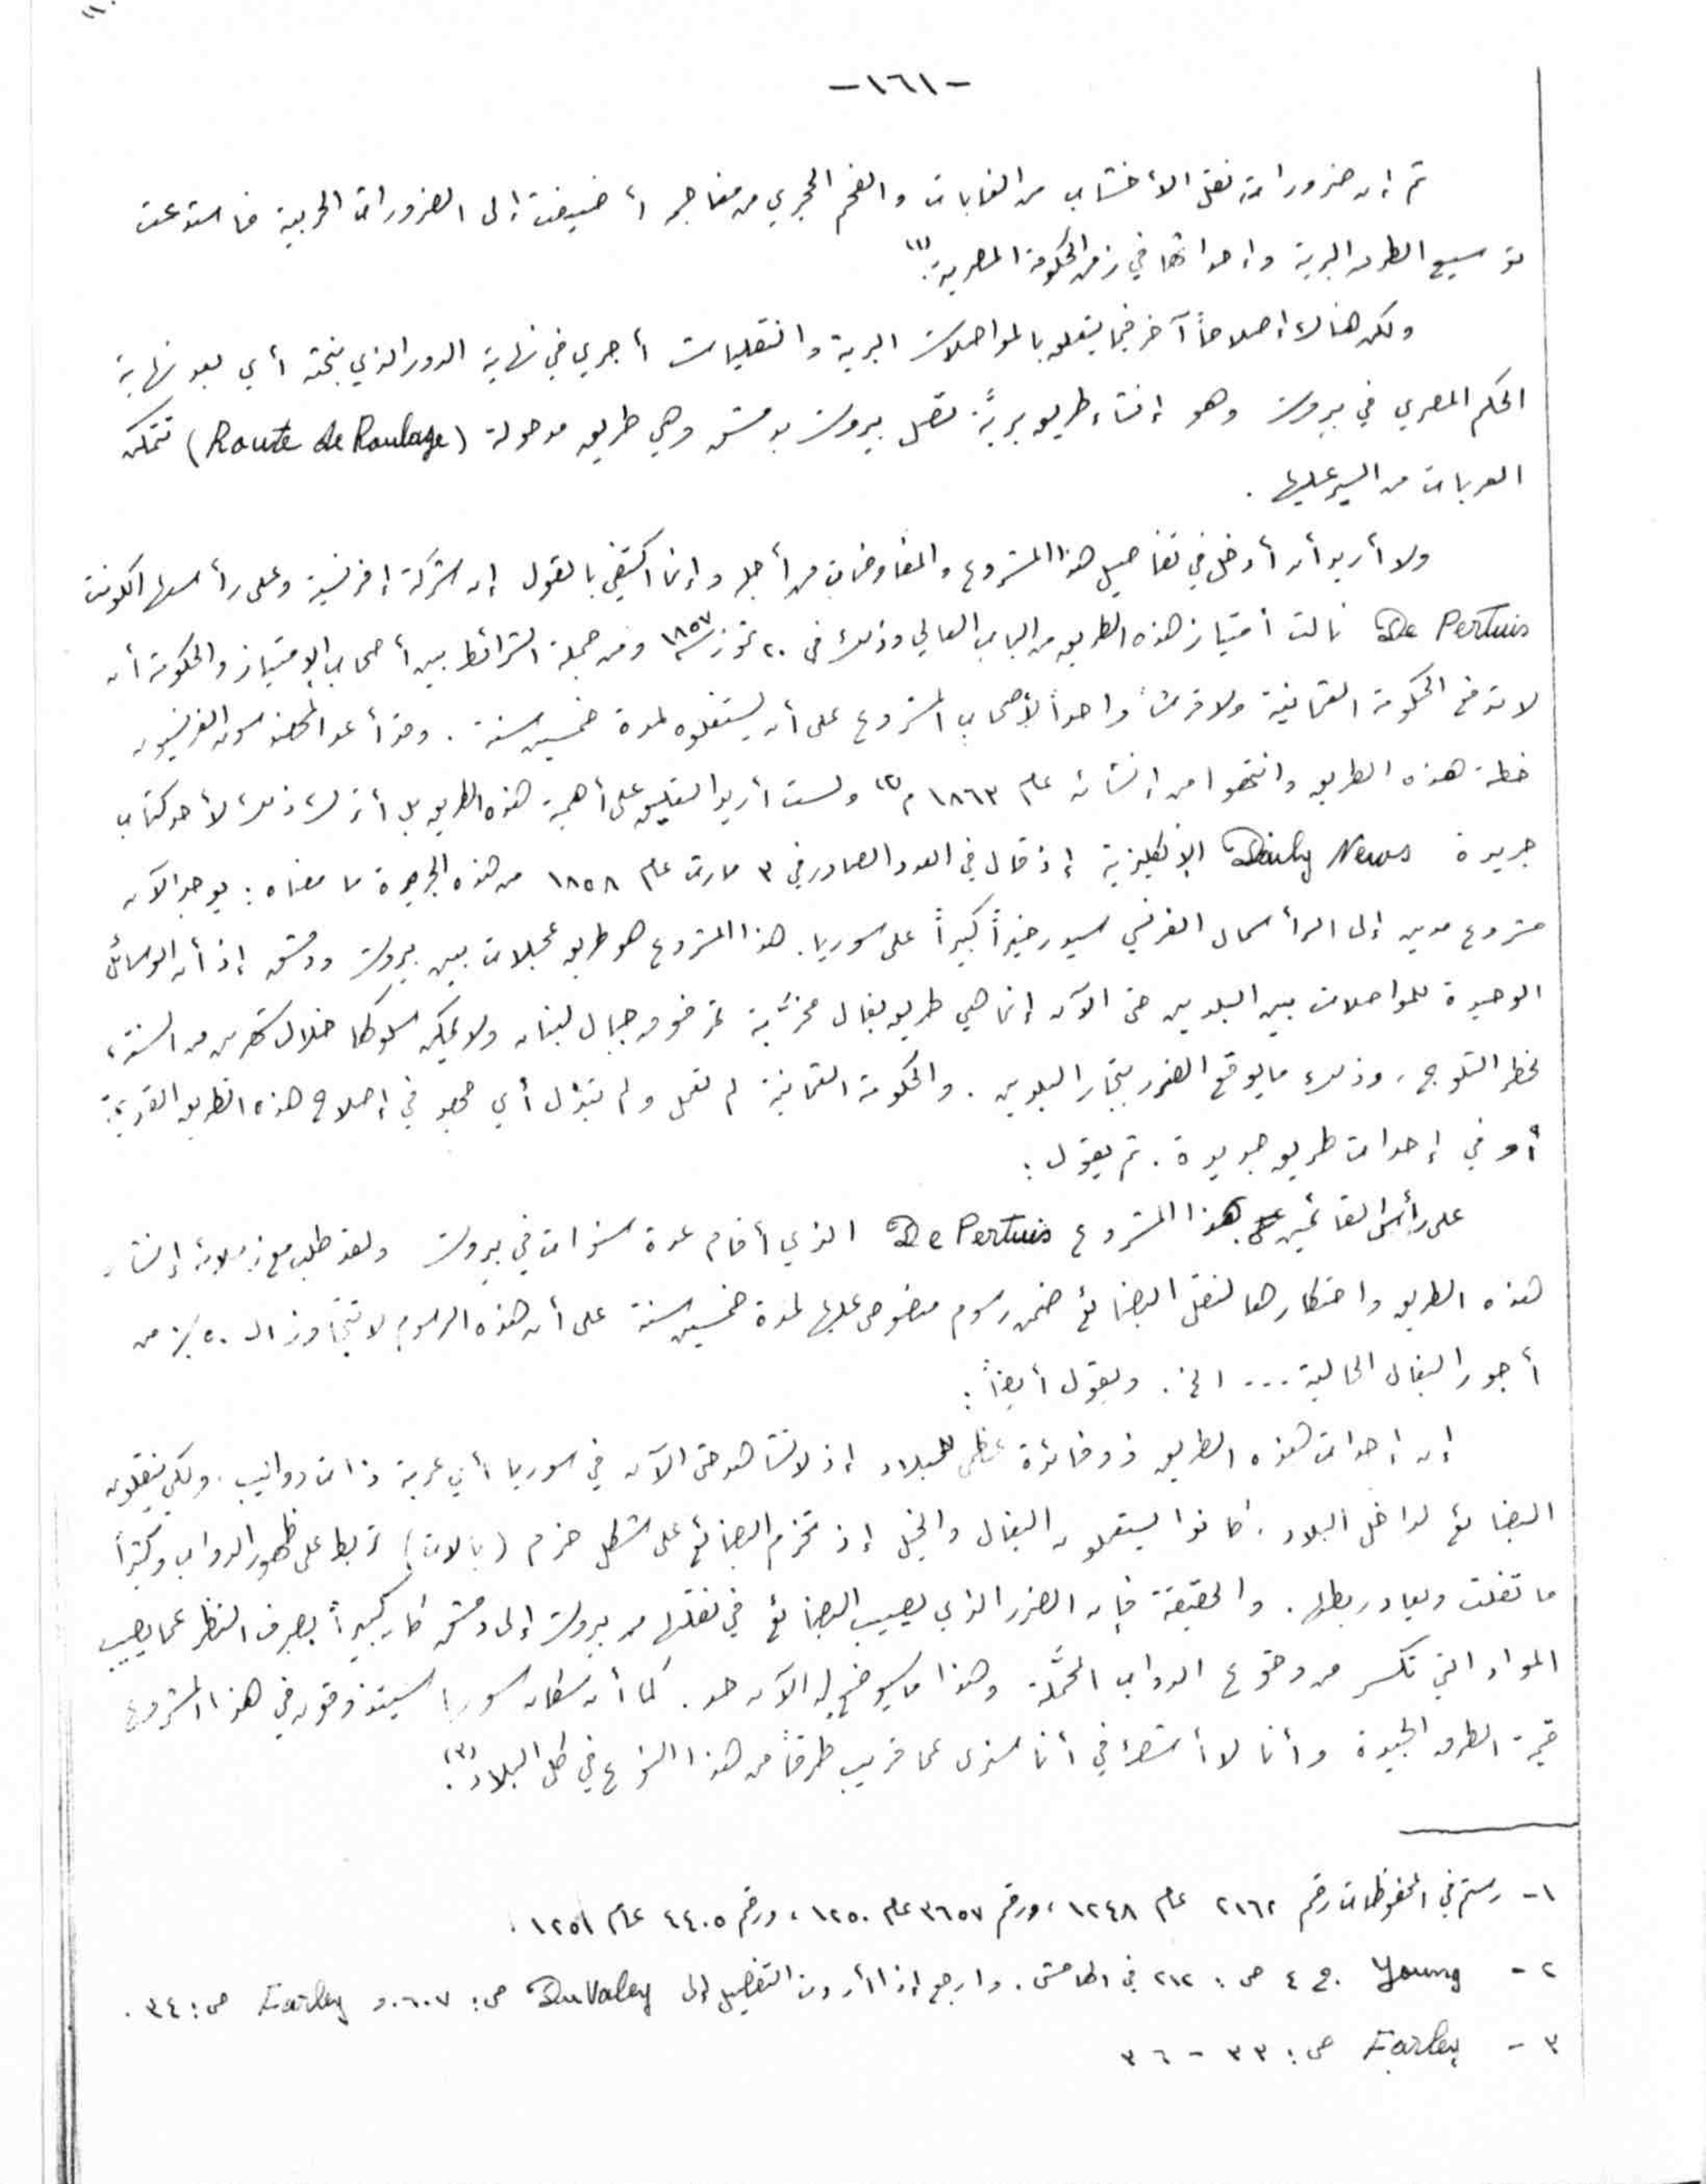 -١٦١-
ثم إن ضرورات نقل الأخشاب من الغابات والفحم الحجري من مناجمه أضيفت إلى الضرورات الحربية فاستدعت
توسيع الطرق البرية وإحداثها في زمن الحكومة المصرية.(١)
ولكن هناك إصلاحاً آخر فيما يتعلق بالمواصلات البرية والنقليات أجري في نهاية الدور الذي نبحثه أي بعد نهاية
الحكم المصري في بيروت وهو إنشاء طريق بريَّة تصل بيروت بدمشق وهي طريق مدحولة (Route de Roulage) تتمكن
العربات من السير عليها.
ولا أريد أن أدخل في تفاصيل هذا المشروع والمفاوضات من أجله وإنما أكتفي بالقول إن شركة إفرنسية وعلى رأسها الكونت
De Pertuis نالت امتياز هذه الطريق من الباب العالي وذلك في ٢٠ تموز سنة ١٨٥٧ ومن جملة الشرائط بين أصحاب الامتياز والحكومة أن
لا تدفع الحكومة العثمانية ولا قرشاً واحداً لأصحاب المشروع على أن يستغلوه لمدة خمسين سنة. وقد أعد المهندسون الفرنسيون
خطة هذه الطريق وانتهوا من إنشائه عام ١٨٦٣ م(٢) ولست أريد التعليق على أهمية هذه الطريق بل أترك ذلك لأحد كتاب
جريدة Daily News الإنكليزية إذ قال في العدد الصادر في ٣ مارت عام ١٨٥٨ من هذه الجريدة ما معناه: يوجد الآن
مشروع مدين إلى الرأسمال الفرنسي سيدر خيراً كبيراً على سوريا. هذا المشروع هو طريق عجلات بين بيروت ودمشق إذ أن الوسائل
الوحيدة للمواصلات بين البلدين حتى الآن إنما هي طريق بغال مخرَّبة تمر فوق جبال لبنان ولا يمكن سلوكها خلال شهرين من السنة،
لخطر الثلوج، وذلك ما يوقع الضرر بتجار البلدين. والحكومة العثمانية لم تعمل ولم تبذل أي جهد في إصلاح هذه الطريق القديمة
أو في إحداث طريق جديدة. ثم يقول:
على رأس القائمين بهذا المشروع De Pertuis الذي أقام عدة سنوات في بيروت ولقد طلب مع زملائه إنشاء
هذه الطريق واحتكارها لنقل البضائع ضمن رسوم منصوص عليها لمدة خمسين سنة على أن هذه الرسوم لا تتجاوز الـ ٥٠٪ من
أجور البغال الحالية... الخ. ويقول أيضاً:
إن إحداث هذه الطريق ذو فائدة عظمى للبلاد إذ لا تشاهد حتى الآن في سوريا أي عربة ذات دواليب. ولكي ينقلون
البضائع لداخل البلاد. كانوا يستعملون البغال والخيل إذ تحزم البضائع على شكل حزم (بالات) تربط على ظهور الدواب وكثيراً
ما تفلت ويعاد ربطها. والحقيقة فإن الضرر الذي يصيب البضائع في نقلها من بيروت إلى دمشق كان كبيراً بصرف النظر عما يصيب
المواد التي تكسر من وقوع الدواب المحمَّلة وهذا ما سيوضع له الآن حد. كما أن سكان سوريا سيتذوقون في هذا المشروع
قيمة الطرق الجيدة وأنا لا أشك في أننا سنرى عما قريب طرقاً من هذا النوع في كل البلاد.(٣)
١- رستم في المحفوظات رقم ٢١٦٢ عام ١٢٤٨، ورقم ٣٦٥٧ عام ١٢٥٠، ورقم ٤٤٠٥ عام ١٢٥١.
٢- Young ج ٤ ص: ٢١٢ في الهامش. وارجع إذا أردت التفصيل إلى Du Valey ص: ٦٠٧ و Farley ص: ٣٤.
٣- Farley ص: ٣٣ - ٣٦